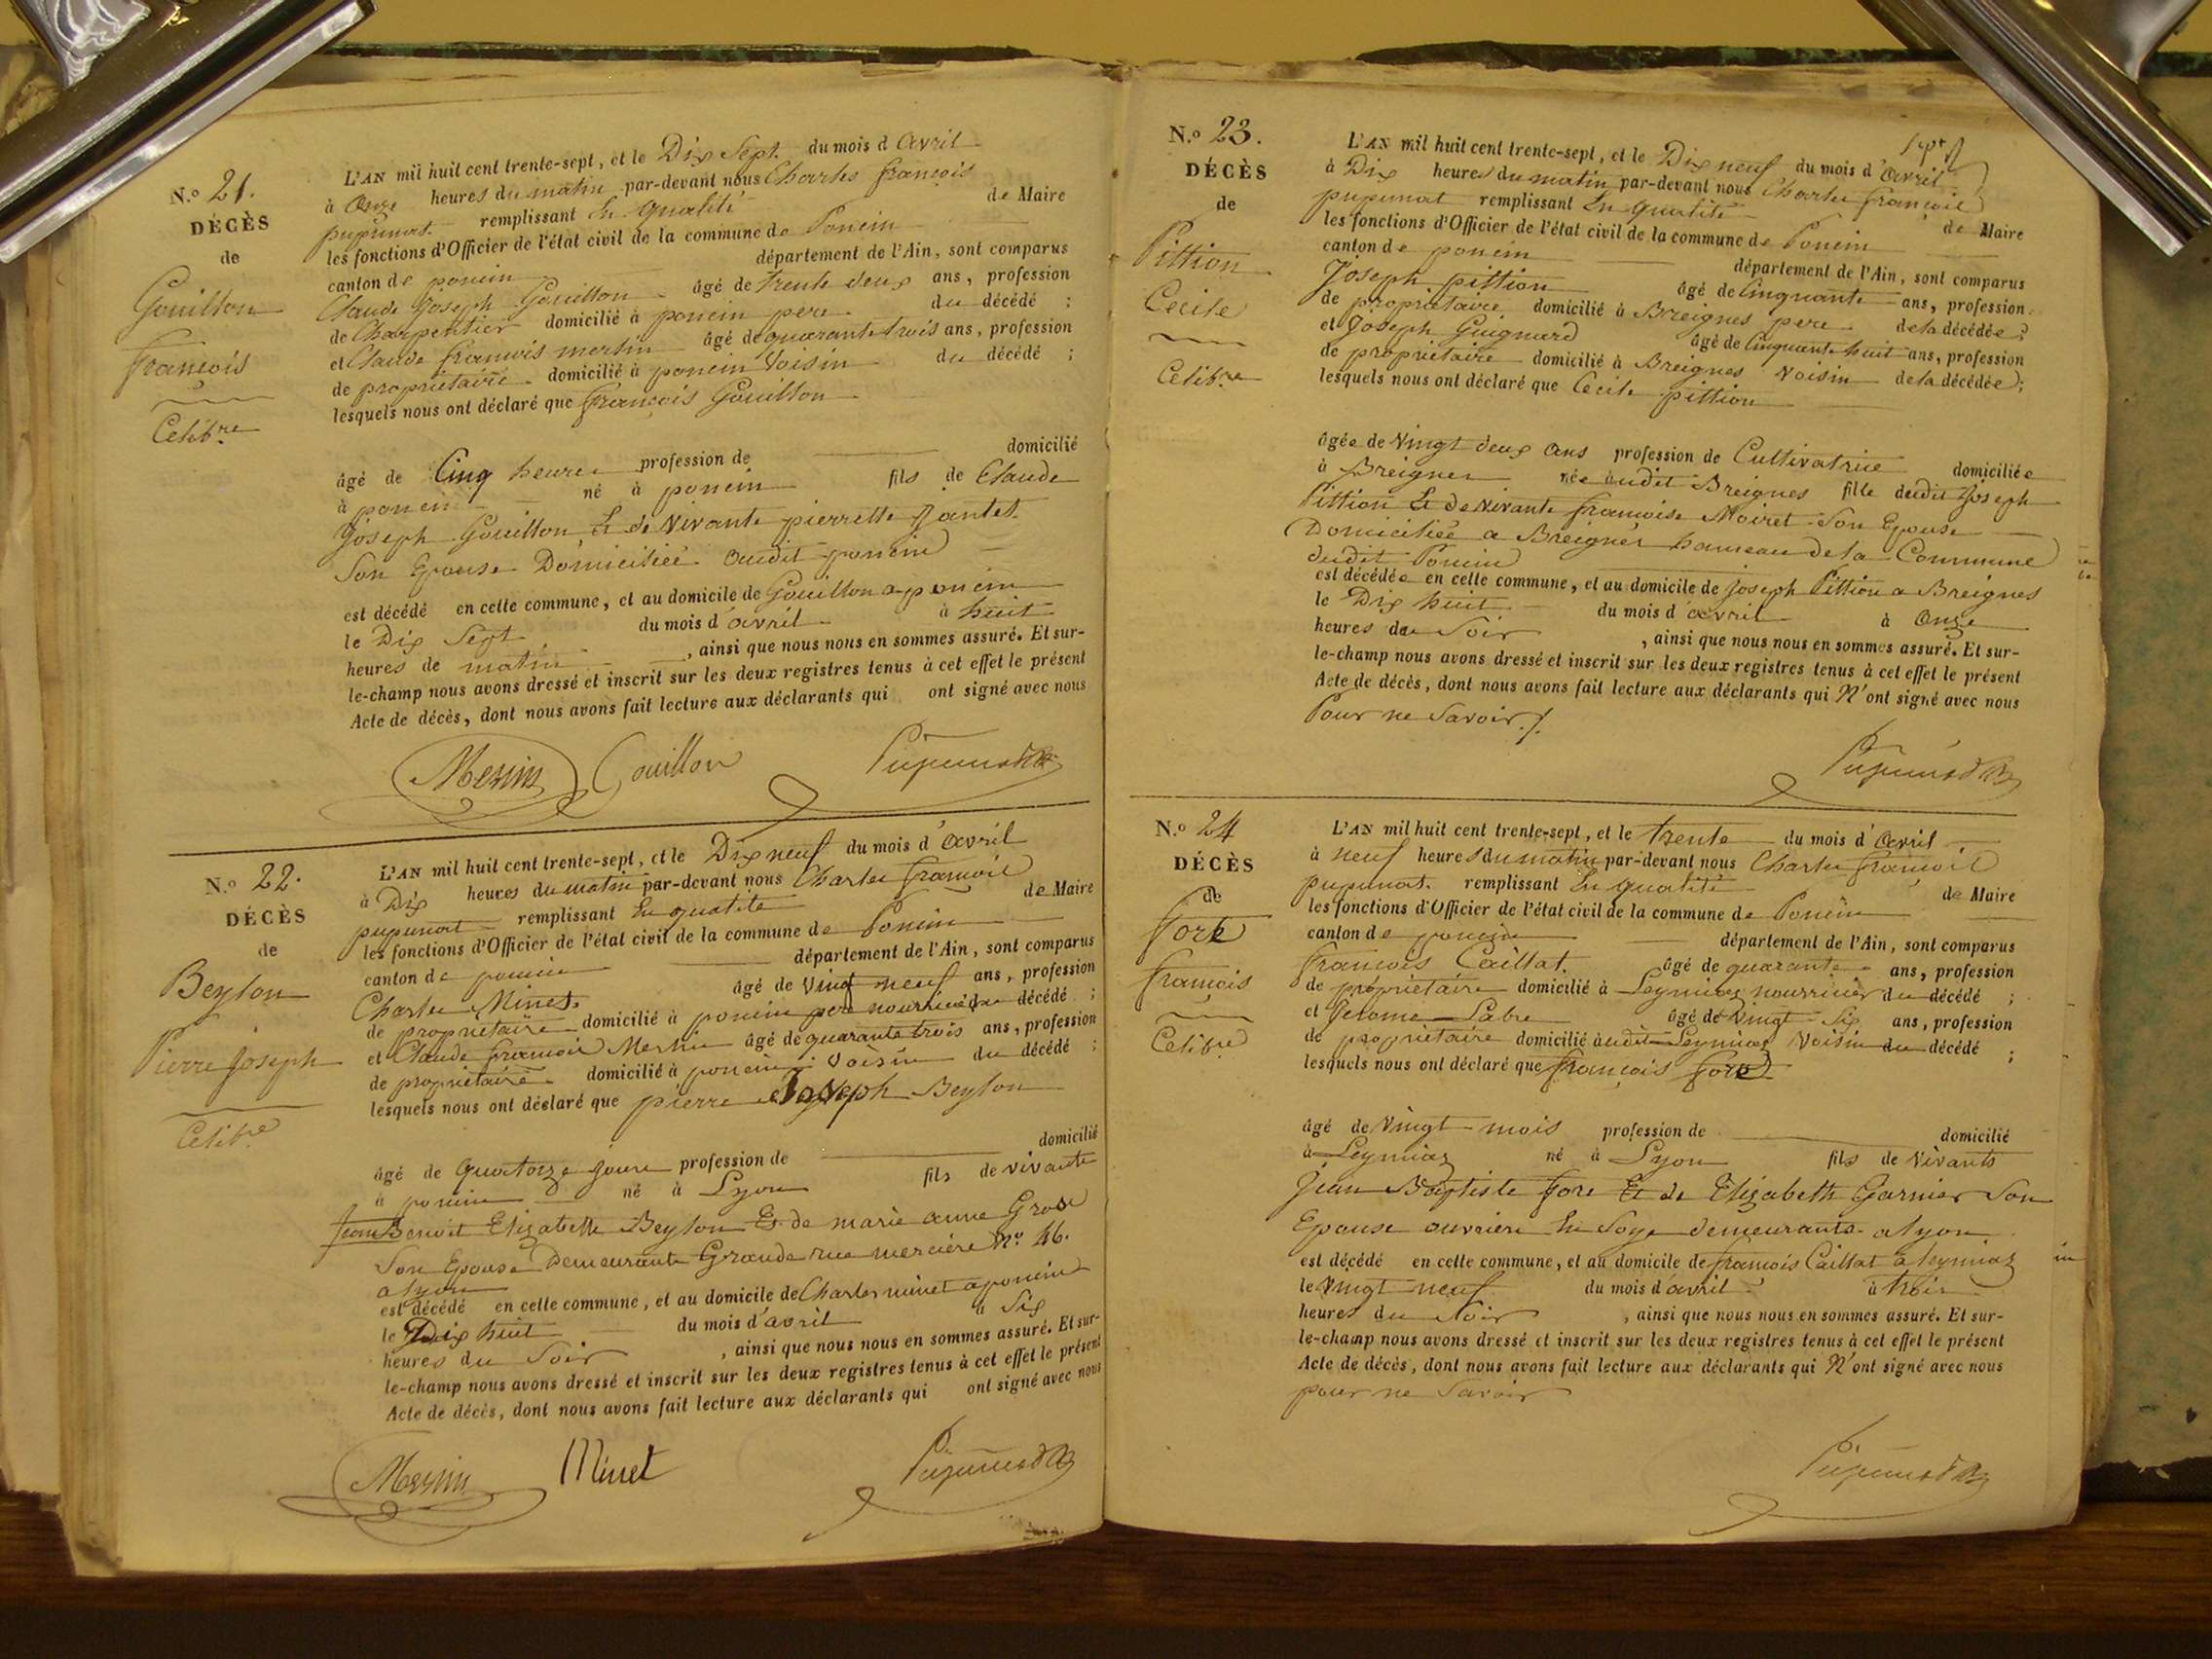 N.º 21.
DÉCÈS
de
Gouillon
François
Celib.re
L'AN mil huit cent trente-sept, et le Dix Sept du mois d avril
à Onze heures du matin par-devant nous Charles françois
pupunat remplissant En qualité de Maire
les fonctions d'Officier de l'état civil de la commune de Poncin
canton de poncin département de l'Ain, sont comparus
Claude Joseph Gouillon âgé de trente deux ans, profession
de Charpentier domicilié à poncin pere du décédé ;
et Claude françois mersin âgé de quarante trois ans, profession
de propriétaire domicilié à poncin Voisin du décédé ;
lesquels nous ont déclaré que françois Gouillon
âgé de Cinq heures profession de domicilié
à poncin né à poncin fils de Claude
Joseph Gouillon Et de Vivante pierrette Jantet
Son Epouse Domiciliée audit poncin
est décédé en cette commune, et au domicile de Gouillon a poncin
le Dix Sept du mois d'avril à huit
heures de matin , ainsi que nous nous en sommes assuré. Et sur-
le-champ nous avons dressé et inscrit sur les deux registres tenus à cet effet le présent
Acte de décès, dont nous avons fait lecture aux déclarants qui ont signé avec nous
Mersin Gouillon Pupunat
N.º 22.
DÉCÈS
de
Beyton
Pierre Joseph
Celib.re
L'AN mil huit cent trente-sept, et le Dix neuf du mois d'avril
à Dix heures du matin par-devant nous Charles françois
pupunat remplissant En qualité de Maire
les fonctions d'Officier de l'état civil de la commune de Poncin
canton de poncin département de l'Ain, sont comparus
Charles Minet âgé de Vingt neuf ans, profession
de propriétaire domicilié à poncin pere nourricier du décédé ;
et Claude françois Mersin âgé de quarante trois ans, profession
de propriétaire domicilié à poncin Voisin du décédé ;
lesquels nous ont déclaré que pierre Joseph Beyton
âgé de quatorze jours profession de domicilié
à poncin né à Lyon fils de vivante
Benoit Elizabeth Beyton Et de marie anne Gros
Son Epouse Demeurante Grande rue merciere N.º 46.
a lyon
est décédé en cette commune, et au domicile de Charles minet a poncin
le Dix huit du mois d'avril à Six
heures du Soir , ainsi que nous nous en sommes assuré. Et sur-
le-champ nous avons dressé et inscrit sur les deux registres tenus à cet effet le présent
Acte de décès, dont nous avons fait lecture aux déclarants qui ont signé avec nous
Mersin Minet Pupunat
N.º 23.
DÉCÈS
de
Pittion
Cecile
Celib.re
L'AN mil huit cent trente-sept, et le Dix neuf du mois d'avril
à Dix heures du matin par-devant nous Charles françois
pupunat remplissant En qualité de Maire
les fonctions d'Officier de l'état civil de la commune de Poncin
canton de poncin département de l'Ain, sont comparus
Joseph pittion âgé de Cinquante ans, profession
de propriétaire domicilié à Breignes pere de la décédée ;
et Joseph Guignard âgé de Cinquante huit ans, profession
de propriétaire domicilié à Breignes Voisin de la décédée ;
lesquels nous ont déclaré que Cecile pittion
âgée de Vingt deux ans profession de Cultivatrice domiciliée
à Breignes née audit Breignes fille dudit Joseph
Pittion Et de Vivante francoise Moiret Son Epouse
Domiciliée a Breignes hameau de la Commune
dudit Poncin
est décédée en cette commune, et au domicile de Joseph Pittion a Breignes
le Dix huit du mois d'avril à Onze
heures du Soir , ainsi que nous nous en sommes assuré. Et sur-
le-champ nous avons dressé et inscrit sur les deux registres tenus à cet effet le présent
Acte de décès, dont nous avons fait lecture aux déclarants qui N'ont signé avec nous
Pour ne Savoir ./.
Pupunat
N.º 24
DÉCÈS
de
Fore
françois
Celib.re
L'AN mil huit cent trente-sept, et le trente du mois d'avril
à neuf heures du matin par-devant nous Charles françois
pupunat remplissant En qualité de Maire
les fonctions d'Officier de l'état civil de la commune de Poncin
canton de poncin département de l'Ain, sont comparus
François Caillat âgé de quarante ans, profession
de propriétaire domicilié à Leymiaz nourricier du décédé ;
et Jerome Labre âgé de Vingt Six ans, profession
de propriétaire domicilié à udit Leymiaz Voisin du décédé ;
lesquels nous ont déclaré que françois fore
âgé de Vingt mois profession de domicilié
à Leymiaz né à Lyon fils de Vivants
Jean Baptiste fore Et de Elizabeth Garnier Son
Epouse ouvriere En Soye demeurants a lyon
est décédé en cette commune, et au domicile de françois Caillat a leymiaz
le Vingt neuf du mois d'avril à trois
heures du Soir , ainsi que nous nous en sommes assuré. Et sur-
le-champ nous avons dressé et inscrit sur les deux registres tenus à cet effet le présent
Acte de décès, dont nous avons fait lecture aux déclarants qui N'ont signé avec nous
pour ne Savoir
Pupunat